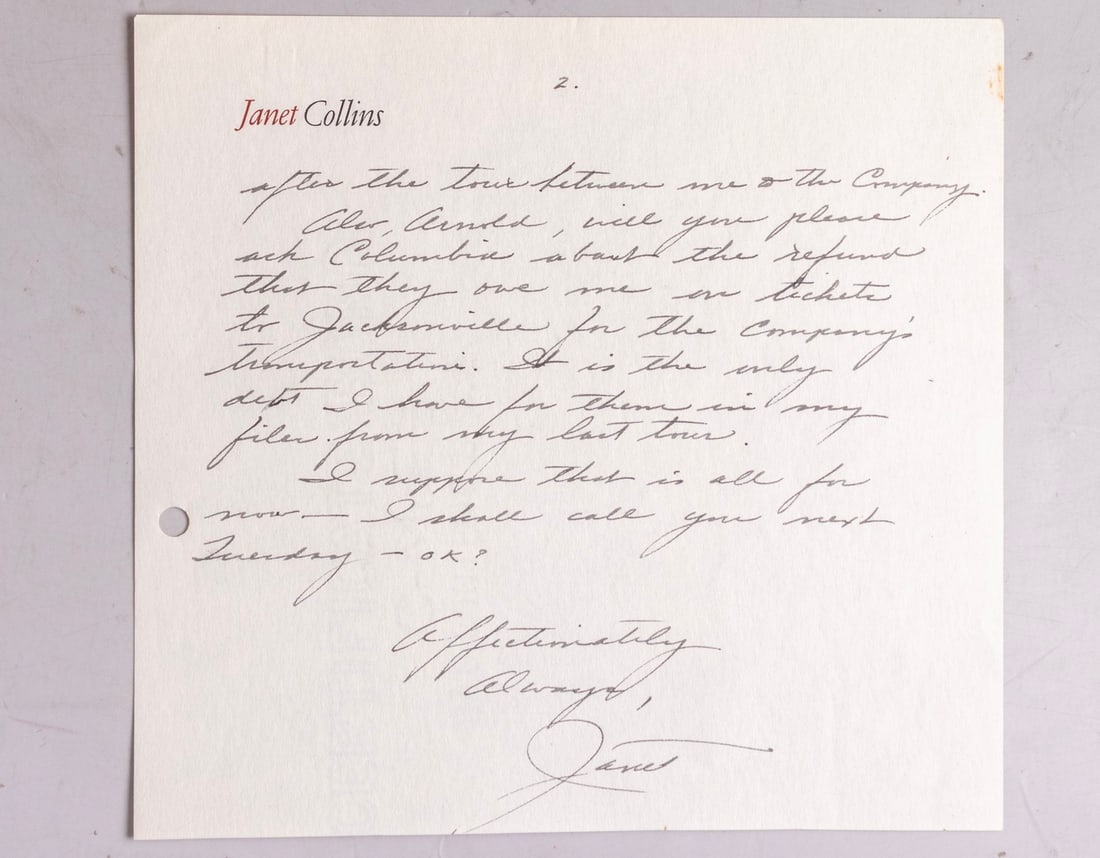 2.
Janet Collins
after the tour between me & the Company.
Also, Arnold, will you please
ask Columbia about the refund
that they owe me on tickets
to Jacksonville for the Company's
transportation. It is the only
debt I have for them in my
files from my last tour.
I suppose that is all for
now — I shall call you next
Tuesday — OK?
Affectionately
Always,
Janet